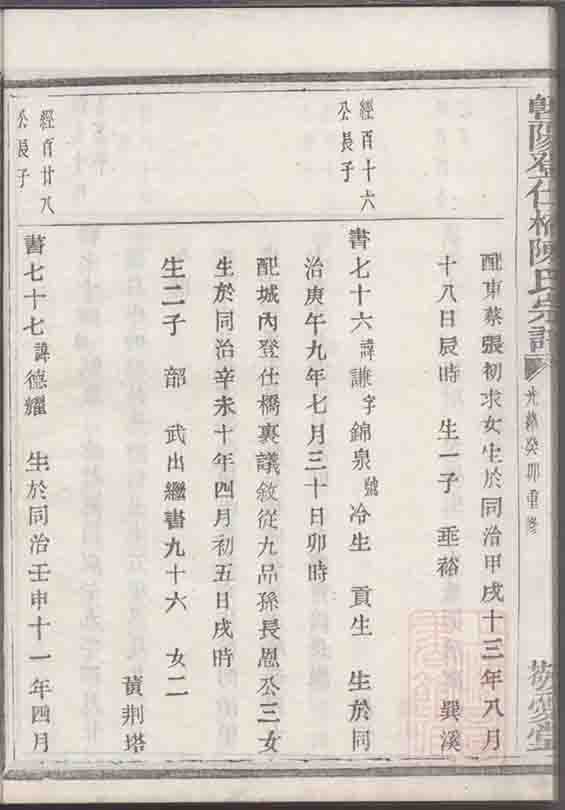 暨陽登仕橋陳氏宗譜
光緒癸卯重修
敬愛堂
配東蔡張初求女生於同治甲戌十三年八月
十八日辰時 生一子 垂裕 巽溪
經百十六
公長子
書七十六諱謙字錦泉號冷生 貢生 生於同
治庚午九年七月三十日卯時
配城內登仕橋裏議敘從九品孫長恩公三女
生於同治辛未十年四月初五日戌時
生二子 部 武出繼書九十六 女二
黃荆塔
經百廿八
公長子
書七十七諱德耀 生於同治壬申十一年四月